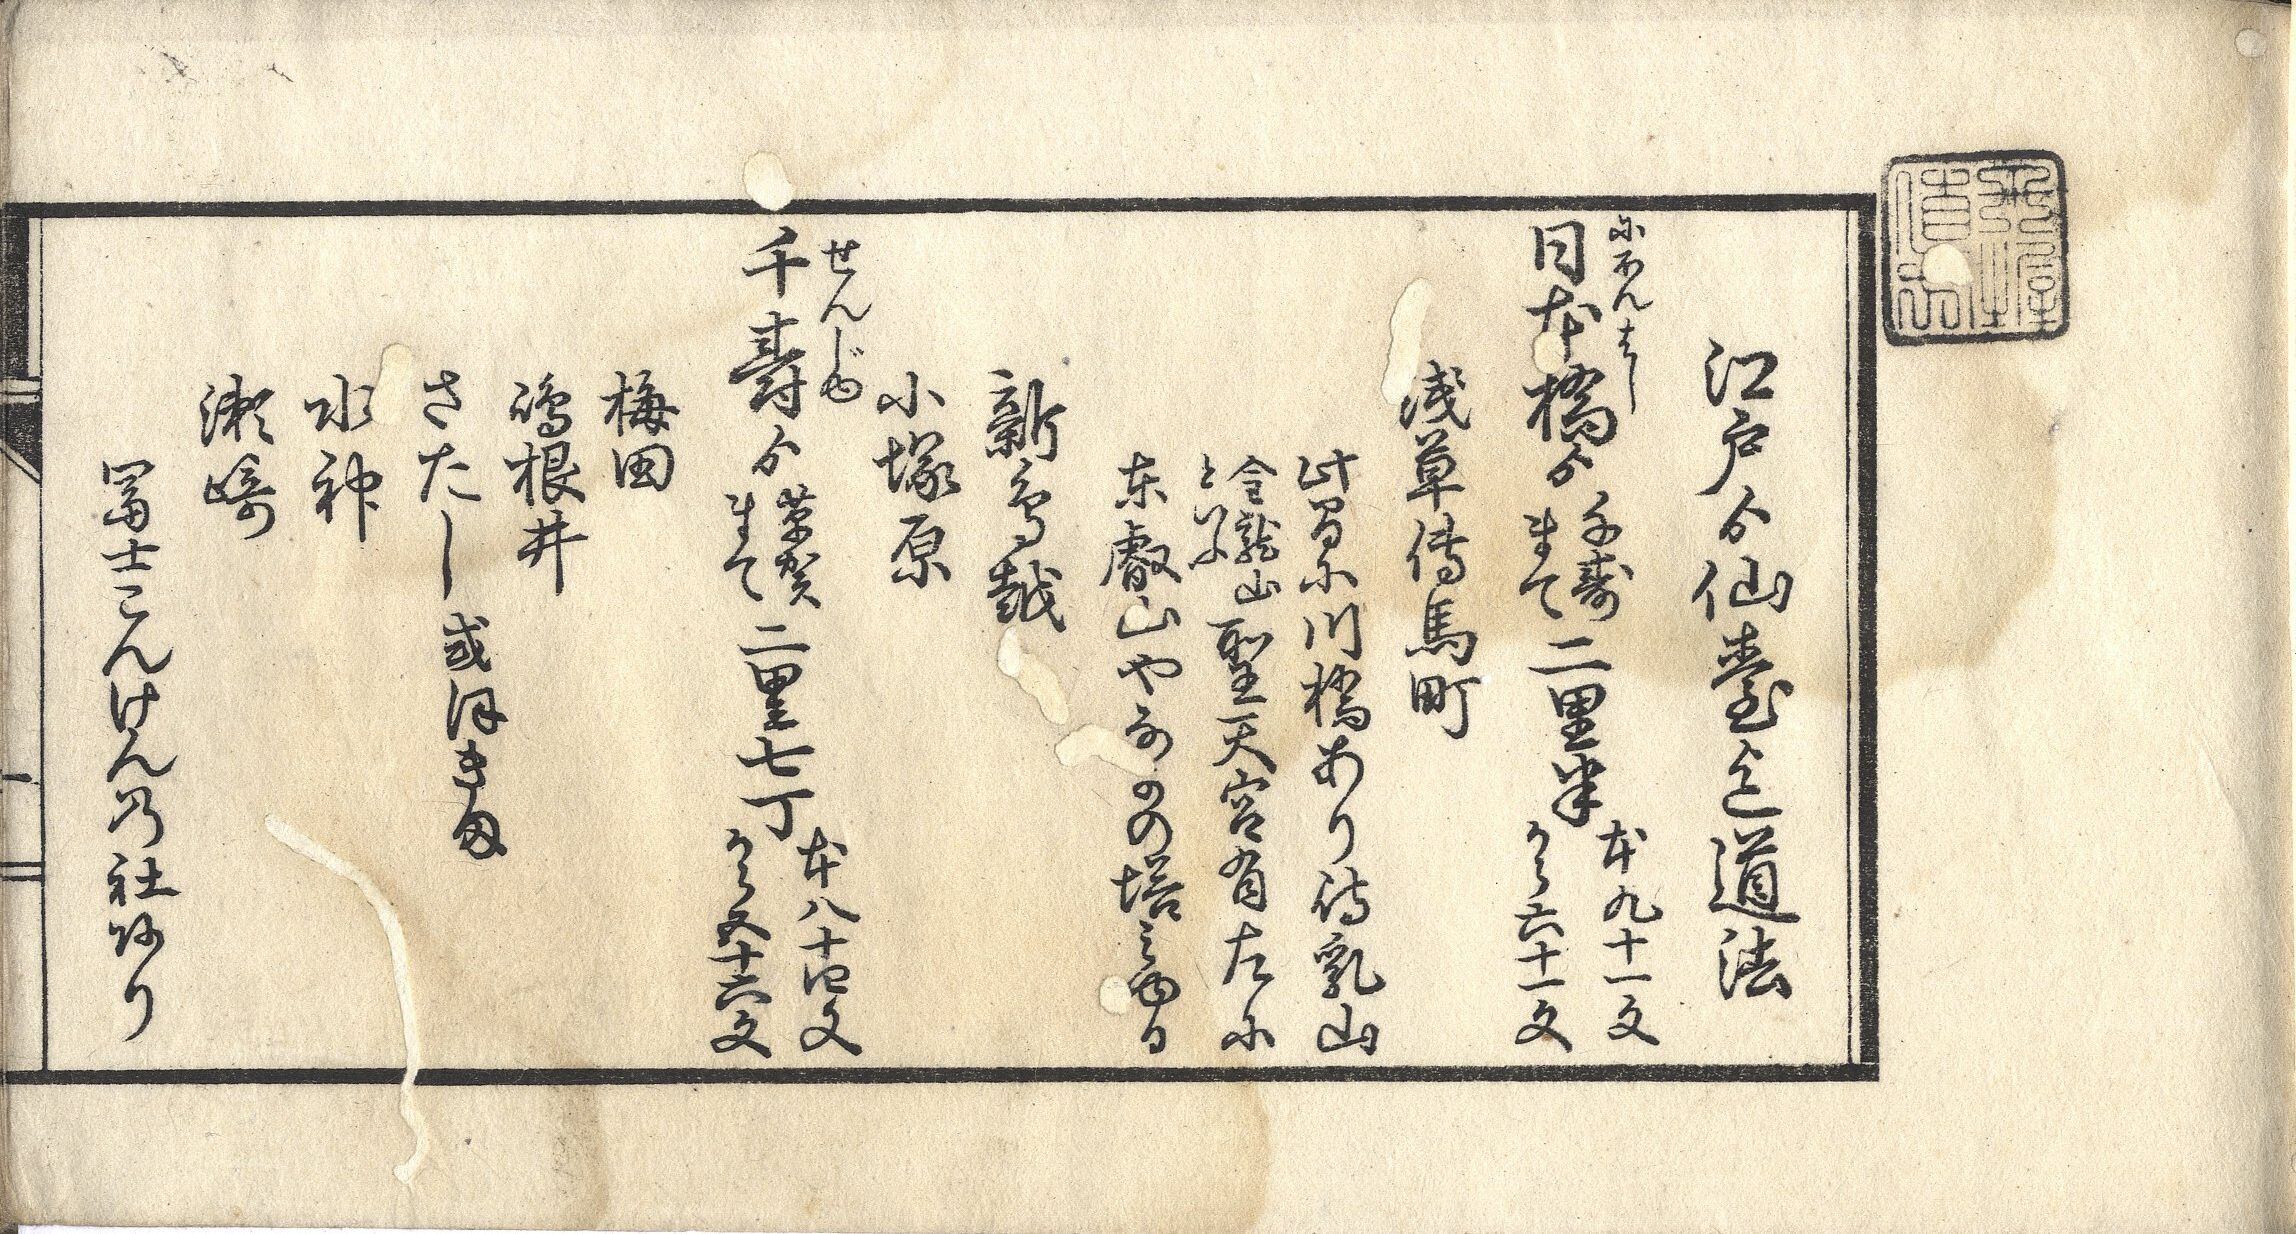 江戸ゟ仙臺迄道法
にほんばし
日本橋ゟ
千寿
まて
二里半
本九十一文
から六十一文
浅草傳馬町
此間に小川橋あり待乳山
金龍山
といふ
聖天宮有左に
東叡山やなかの塔みゆる
新鳥越
小塚原
せんじゆ
千壽ゟ
草賀
まて
二里七丁
本八十四文
から五十六文
梅田
嶋根井
さたし
水神
瀬崎
冨士こんけん乃社あり